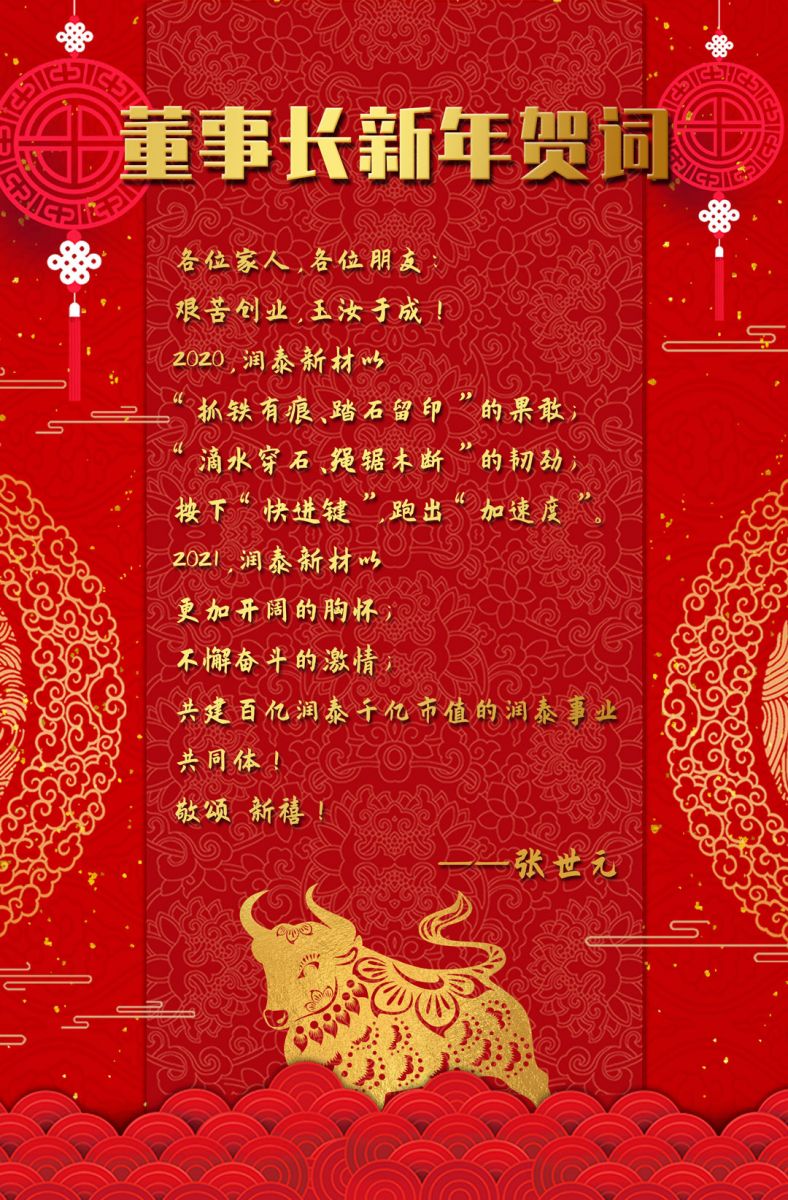 董事长新年贺词
各位家人,各位朋友:
艰苦创业,玉汝于成!
2020,润泰新材以
“抓铁有痕、踏石留印”的果敢;
“滴水穿石、绳锯木断”的韧劲;
按下“快进键”,跑出“加速度”。
2021,润泰新材以
更加开阔的胸怀;
不懈奋斗的激情;
共建百亿润泰千亿市值的润泰事业
共同体!
敬颂 新禧!
——张世元